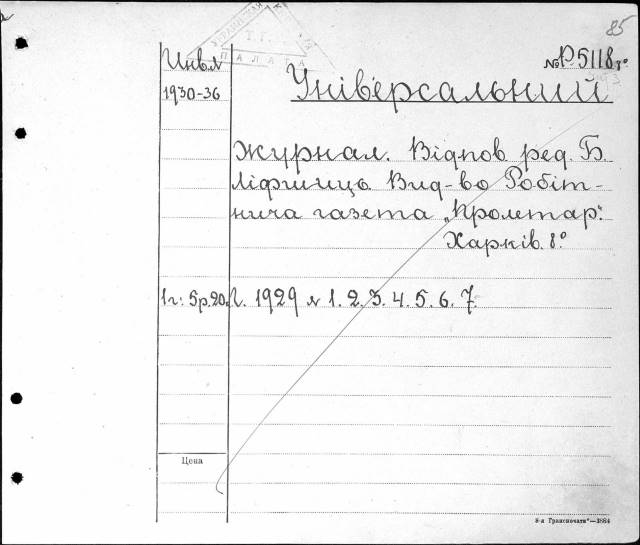 85
Инв.№ № Р5118 8°
1930-36 Універсальний
журнал. Відпов ред. Б.
Ліфшиць Вид-во Робіт-
нича газета „Пролетар".
Харків. 8°
1г: 5р.20к. 1929 № 1. 2. 3. 4. 5. 6. 7.
Цена
8-я Транспечати"—3864